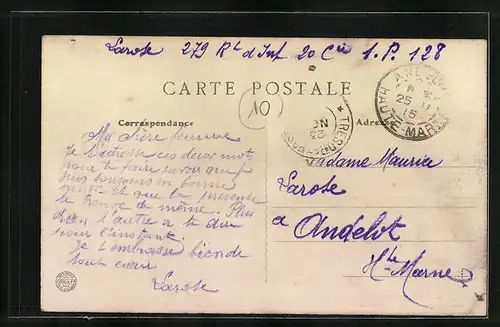 Larose 279 Rt d'Inf 20 Cie S.P. 128
CARTE POSTALE
10
Correspondance
Adresse
HAUTE-MARNE
25
15
TRESOR
Ma chère femme
Je t'adresse ces deux mots
pour te faire savoir que je
suis toujours en bonne
santé et que la présente
te trouve de même. Plus
rien d'autre a te dire
pour l'instant.
Je t'embrasse bien de
tout cœur
Larose
Madame Maurice
Larose
a Andelot
Hte Marne